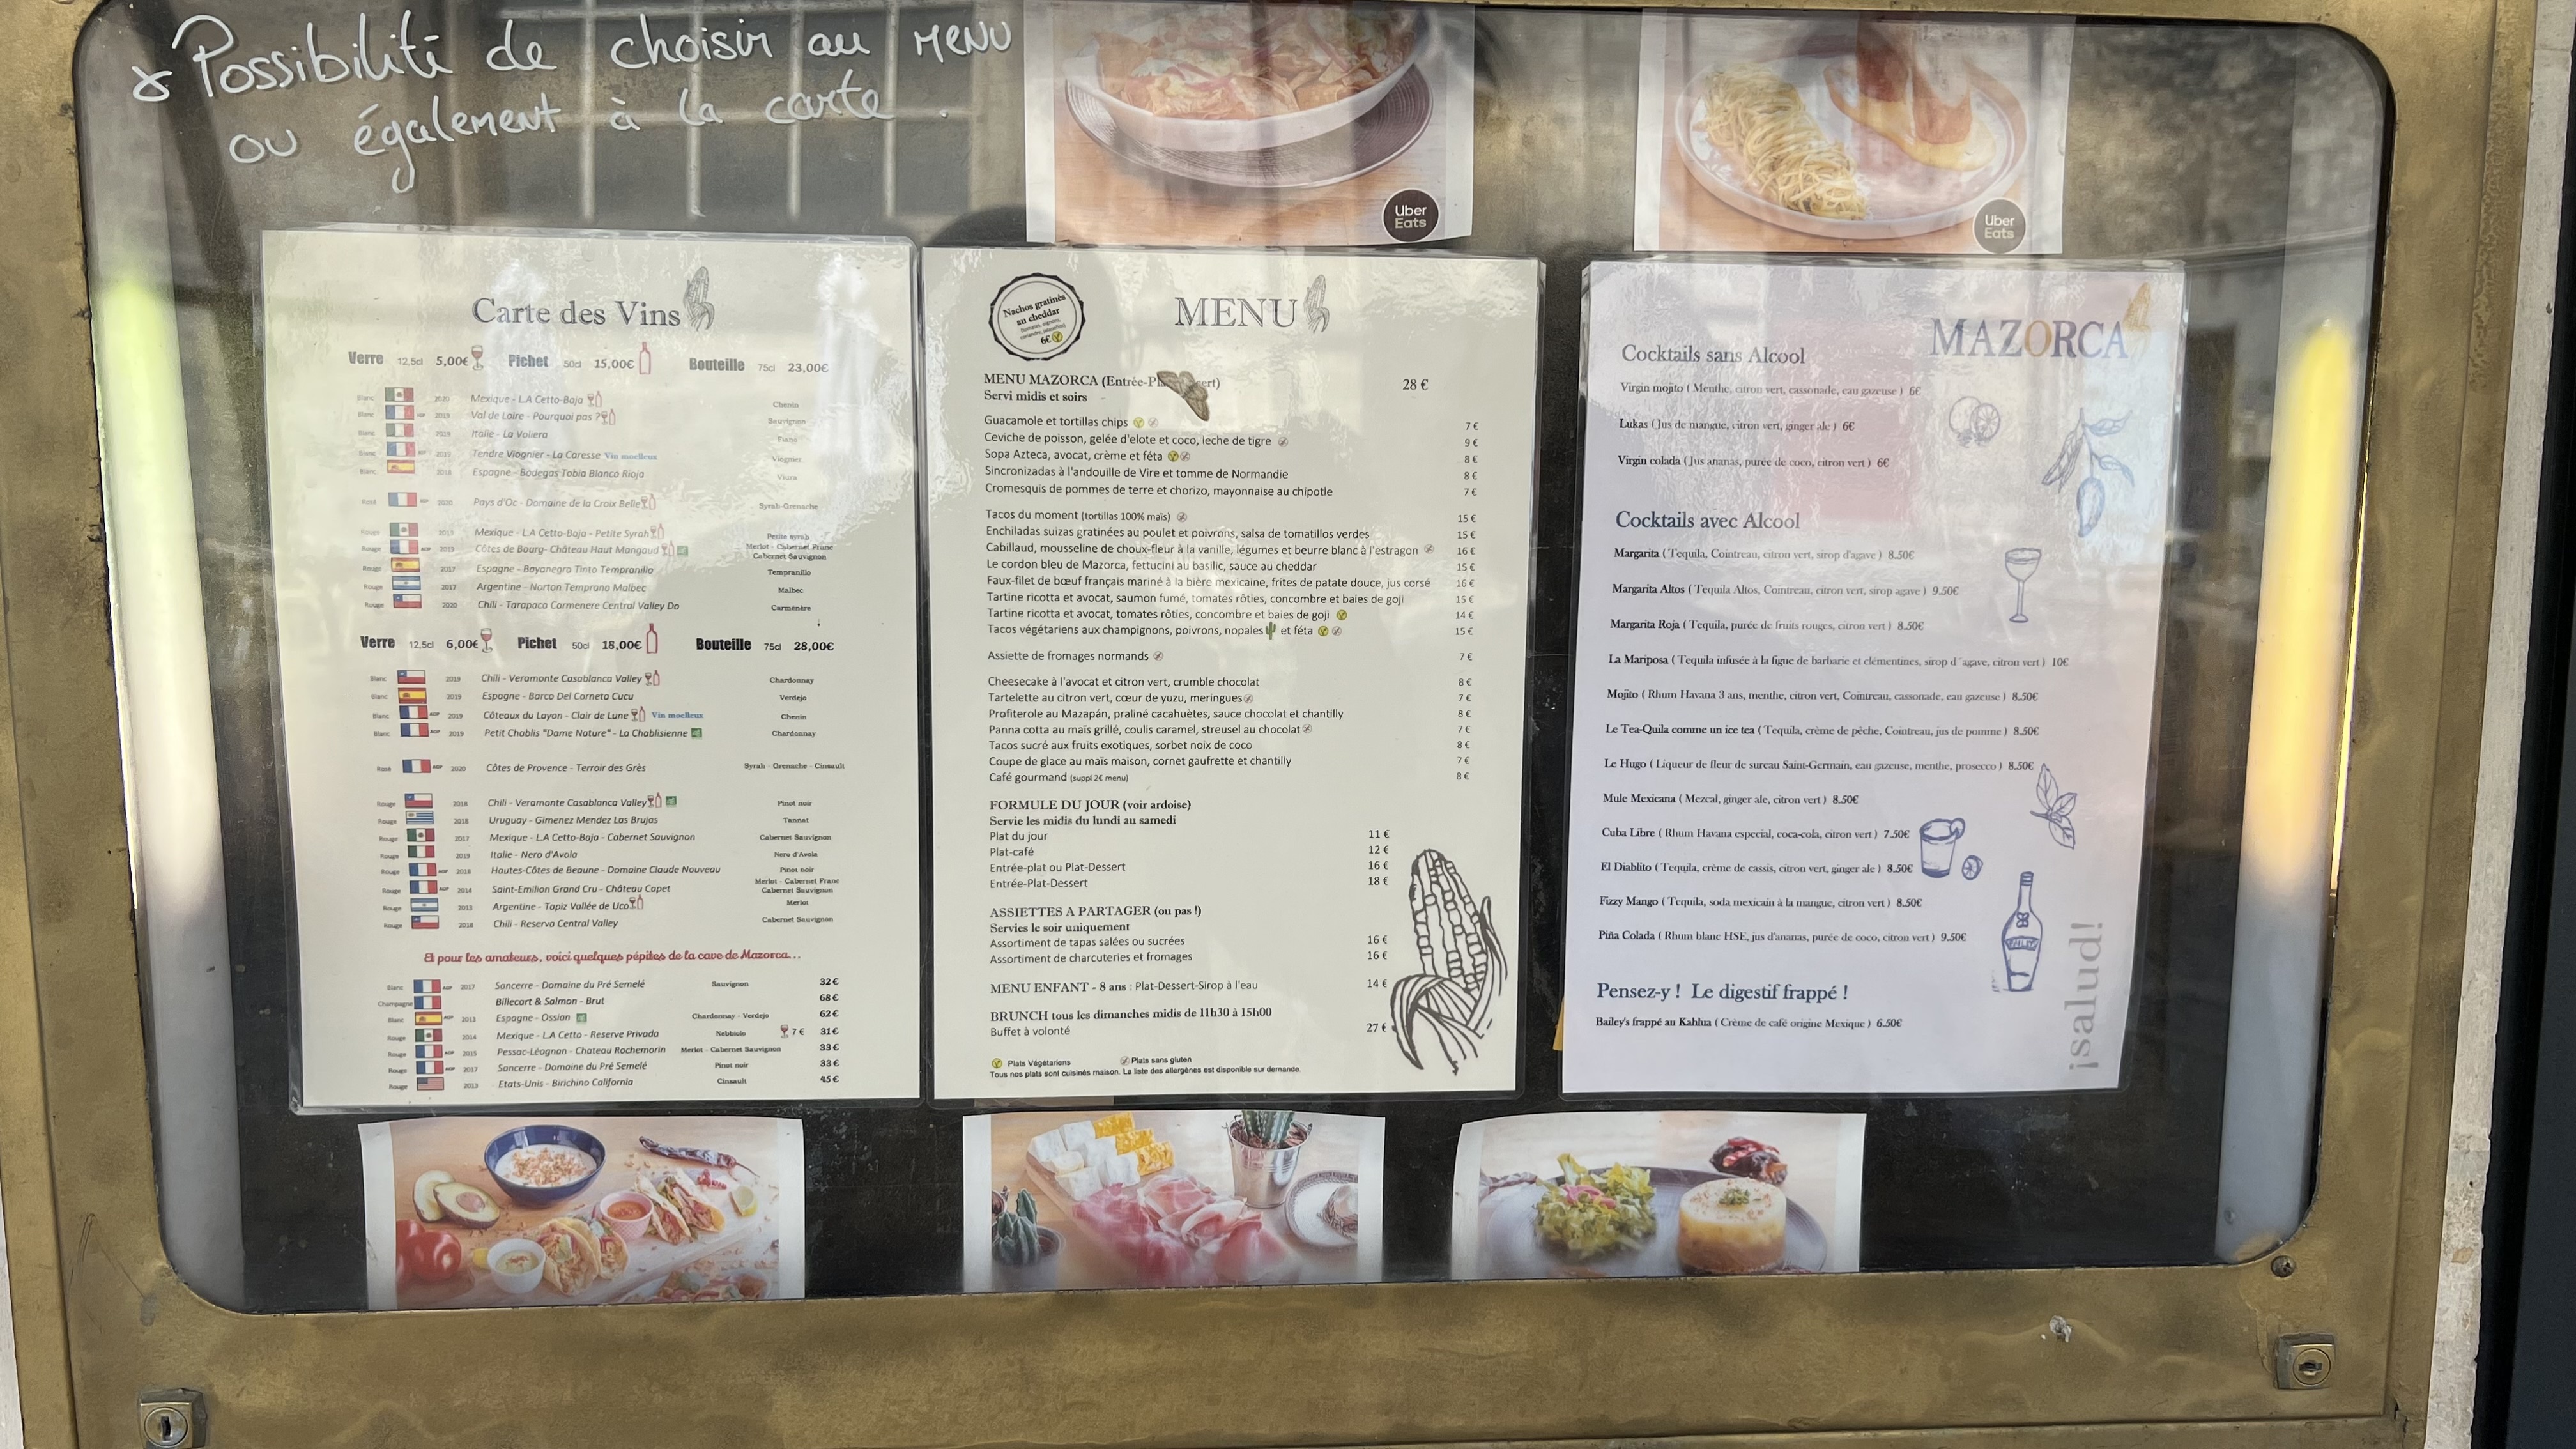 Possibilité de choisir au MENU
ou également à la carte.
Uber
Eats
Uber
Eats
Carte des Vins
Verre 12,5cl 5,00€ Pichet 50cl 15,00€ Bouteille 75cl 23,00€
Blanc 2020 Mexique - L.A Cetto-Baja Chenin
Blanc AOP 2019 Val de Loire - Pourquoi pas ? Sauvignon
Blanc 2019 Italie - La Voliera Fiano
Blanc 2019 Tendre Viognier - La Caresse Vin moelleux Viognier
Blanc 2018 Espagne - Bodegas Tobia Blanco Rioja Viura
Rosé AOP 2020 Pays d'Oc - Domaine de la Croix Belle Syrah-Grenache
Rouge Mexique - L.A Cetto-Baja - Petite Syrah Petite syrah
Rouge AOP Côtes de Bourg- Château Haut Mangaud Merlot - Cabernet Franc
Cabernet Sauvignon
Rouge 2017 Espagne - Bayanegra Tinto Tempranillo Tempranillo
Rouge 2017 Argentine - Norton Temprano Malbec Malbec
Rouge 2020 Chili - Tarapaca Carmenere Central Valley Do Carménère
Verre 12,5cl 6,00€ Pichet 50cl 18,00€ Bouteille 75cl 28,00€
Blanc 2019 Chili - Veramonte Casablanca Valley Chardonnay
Blanc 2019 Espagne - Barco Del Corneta Cucu Verdejo
Blanc AOP 2019 Côteaux du Layon - Clair de Lune Vin moelleux Chenin
Blanc AOP 2019 Petit Chablis "Dame Nature" - La Chablisienne Chardonnay
Rosé AOP 2020 Côtes de Provence - Terroir des Grès Syrah - Grenache - Cinsault
Rouge 2018 Chili - Veramonte Casablanca Valley Pinot noir
Rouge 2018 Uruguay - Gimenez Mendez Las Brujas Tannat
Rouge 2017 Mexique - L.A Cetto-Baja - Cabernet Sauvignon Cabernet Sauvignon
Rouge 2019 Italie - Nero d'Avola Nero d'Avola
Rouge AOP 2018 Hautes-Côtes de Beaune - Domaine Claude Nouveau Pinot noir
Rouge AOP 2014 Saint-Emilion Grand Cru - Château Capet Merlot - Cabernet Franc
Cabernet Sauvignon
Rouge 2013 Argentine - Tapiz Vallée de Uco Merlot
Rouge 2018 Chili - Reserva Central Valley Cabernet Sauvignon
Et pour les amateurs, voici quelques pépites de la cave de Mazorca...
Blanc AOP 2017 Sancerre - Domaine du Pré Semelé Sauvignon 32€
Champagne Billecart & Salmon - Brut 68€
Blanc AOP 2013 Espagne - Ossian Chardonnay - Verdejo 62€
Rouge 2014 Mexique - L.A Cetto - Reserve Privada Nebbiolo 7€ 31€
Rouge AOP 2015 Pessac-Léognan - Chateau Rochemorin Merlot - Cabernet Sauvignon 33€
Rouge AOP 2017 Sancerre - Domaine du Pré Semelé Pinot noir 33€
Rouge 2013 Etats-Unis - Birichino California Cinsault 45€
Nachos gratinés
au cheddar
6€
MENU
MENU MAZORCA (Entrée- 28 €
Servi midis et soirs
Guacamole et tortillas chips 7 €
Ceviche de poisson, gelée d'elote et coco, leche de tigre 9 €
Sopa Azteca, avocat, crème et féta 8 €
Sincronizadas à l'andouille de Vire et tomme de Normandie 8 €
Cromesquis de pommes de terre et chorizo, mayonnaise au chipotle 7 €
Tacos du moment (tortillas 100% maïs) 15 €
Enchiladas suizas gratinées au poulet et poivrons, salsa de tomatillos verdes 15 €
Cabillaud, mousseline de choux-fleur à la vanille, légumes et beurre blanc à l'estragon 16 €
Le cordon bleu de Mazorca, fettucini au basilic, sauce au cheddar 15 €
Faux-filet de bœuf français mariné à la bière mexicaine, frites de patate douce, jus corsé 16 €
Tartine ricotta et avocat, saumon fumé, tomates rôties, concombre et baies de goji 15 €
Tartine ricotta et avocat, tomates rôties, concombre et baies de goji 14 €
Tacos végétariens aux champignons, poivrons, nopales et féta 15 €
Assiette de fromages normands 7 €
Cheesecake à l'avocat et citron vert, crumble chocolat 8 €
Tartelette au citron vert, cœur de yuzu, meringues 7 €
Profiterole au Mazapán, praliné cacahuètes, sauce chocolat et chantilly 8 €
Panna cotta au maïs grillé, coulis caramel, streusel au chocolat 7 €
Tacos sucré aux fruits exotiques, sorbet noix de coco 8 €
Coupe de glace au maïs maison, cornet gaufrette et chantilly 7 €
Café gourmand (suppl 2€ menu) 8 €
FORMULE DU JOUR (voir ardoise)
Servie les midis du lundi au samedi
Plat du jour 11 €
Plat-café 12 €
Entrée-plat ou Plat-Dessert 16 €
Entrée-Plat-Dessert 18 €
ASSIETTES A PARTAGER (ou pas !)
Servies le soir uniquement
Assortiment de tapas salées ou sucrées 16 €
Assortiment de charcuteries et fromages 16 €
MENU ENFANT - 8 ans : Plat-Dessert-Sirop à l'eau 14 €
BRUNCH tous les dimanches midis de 11h30 à 15h00
Buffet à volonté 27 €
Plats Végétariens Plats sans gluten
Tous nos plats sont cuisinés maison. La liste des allergènes est disponible sur demande.
MAZORCA
Cocktails sans Alcool
Virgin mojito ( Menthe, citron vert, cassonade, eau gazeuse ) 6€
Lukas (Jus de mangue, citron vert, ginger ale ) 6€
Virgin colada (Jus ananas, purée de coco, citron vert ) 6€
Cocktails avec Alcool
Margarita ( Tequila, Cointreau, citron vert, sirop d'agave ) 8.50€
Margarita Altos ( Tequila Altos, Cointreau, citron vert, sirop agave ) 9.50€
Margarita Roja ( Tequila, purée de fruits rouges, citron vert ) 8.50€
La Mariposa ( Tequila infusée à la figue de barbarie et clémentines, sirop d'agave, citron vert ) 10€
Mojito ( Rhum Havana 3 ans, menthe, citron vert, Cointreau, cassonade, eau gazeuse ) 8.50€
Le Tea-Quila comme un ice tea ( Tequila, crème de pêche, Cointreau, jus de pomme ) 8.50€
Le Hugo ( Liqueur de fleur de sureau Saint-Germain, eau gazeuse, menthe, prosecco ) 8.50€
Mule Mexicana ( Mezcal, ginger ale, citron vert ) 8.50€
Cuba Libre ( Rhum Havana especial, coca-cola, citron vert ) 7.50€
El Diablito ( Tequila, crème de cassis, citron vert, ginger ale ) 8.50€
Fizzy Mango ( Tequila, soda mexicain à la mangue, citron vert ) 8.50€
Piña Colada ( Rhum blanc HSE, jus d'ananas, purée de coco, citron vert ) 9.50€
Pensez-y ! Le digestif frappé !
Bailey's frappé au Kahlua ( Crème de café origine Mexique ) 6.50€
¡salud!